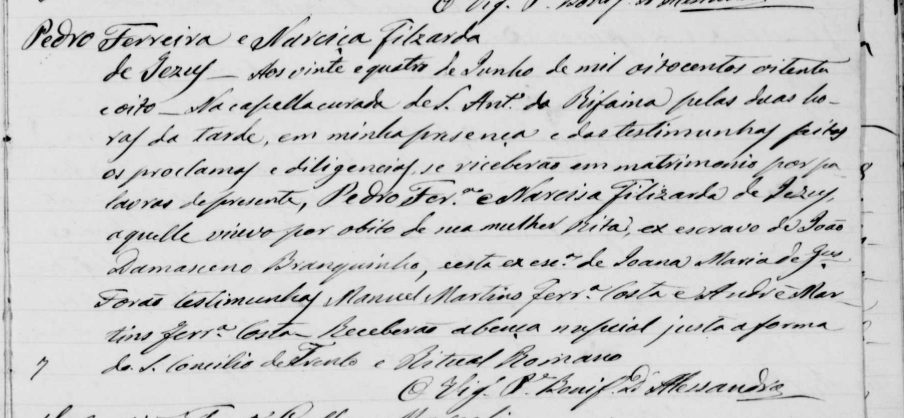 O Vig. P. Bonif. D'
Pedro Ferreira e Narciza Filzarda
de Jezus — Aos vinte e quatro de Junho de mil oitocentos oitenta
e oito — Na capella curada de S. Ant.º da Rifaina, pelas duas ho-
ras da tarde, em minha presença e das testimunhas, feitos
os proclamas e diligencias, se receberão em matrimonio por pa
lavras de presente, Pedro Fer.ra e Narcisa Filizarda de Jezus,
aquelle viuvo por obito de sua mulher Rita, ex escravo de João
Damasceno Branquinho, e esta ex esc.ª de Joana Maria de Jus
Forão testimunhas Manuel Martins Ferr.ª Costa e André Mar-
tins Ferr.ª Costa — Receberão a bença nupcial justa a forma
do S. Concilio de Trento e Ritual Romano
7
O Vig. P.e Bonif. D' Alessandro